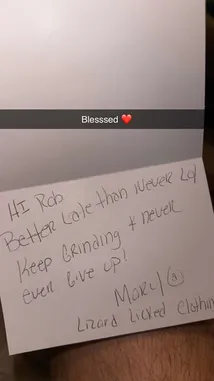 Blesssed ❤️
Hi Rob
Better Late than Never Lol
Keep Grinding + never
ever Give up!
Marc/
Lizard Licked Clothin